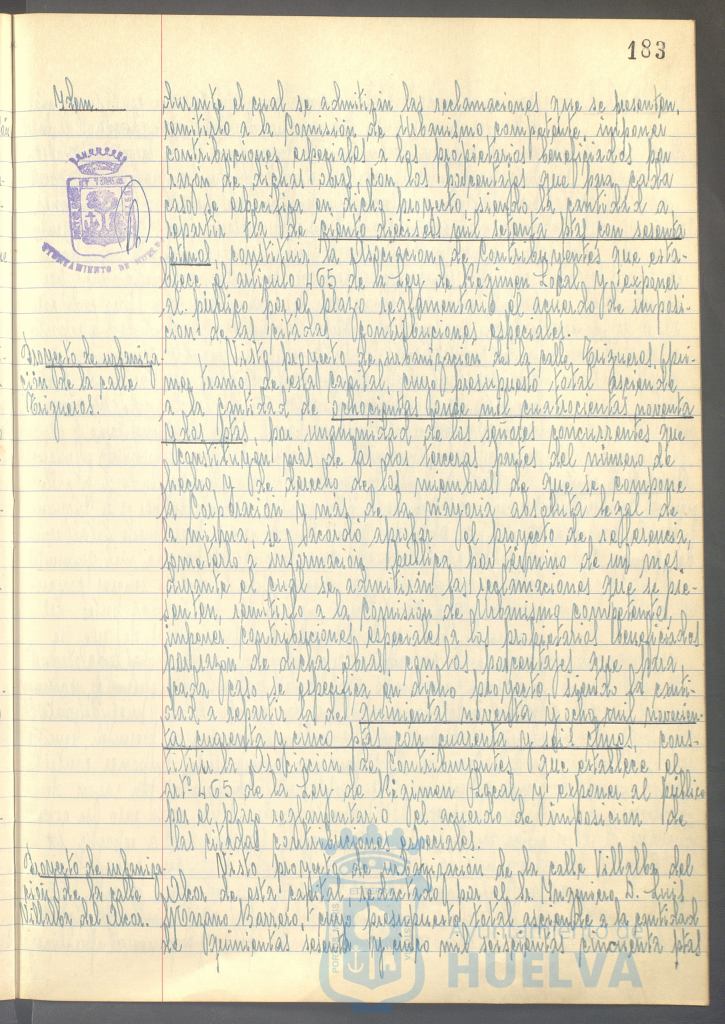 183
Idem.
AYUNTAMIENTO DE HUELVA
durante el cual se admitirán las reclamaciones que se presenten,
remitirlo a la Comisión de Urbanismo competente, imponer
contribuciones especiales a los propietarios beneficiados por
razón de dichas obras, con los porcentajes que para cada
caso se especifica en dicho proyecto, siendo la cantidad a
repartir la de ciento dieciseis mil setenta ptas con sesenta
ctmos, constituir la Asociación de Contribuyentes que esta-
blece el artículo 465 de la Ley de Régimen Local y exponer
al público por el plazo reglamentario el acuerdo de imposi-
ción de las citadas contribuciones especiales.
Proyecto de urbaniza-
ción de la calle
Trigueros.
Visto proyecto de urbanización de la calle Trigueros (pri-
mer tramo) de esta capital, cuyo presupuesto total asciende
a la cantidad de ochocientas once mil cuatrocientas noventa
y dos ptas, por unanimidad de los señores concurrentes que
constituyen más de las dos terceras partes del número de
hecho y de derecho de los miembros de que se compone
la Corporación y más de la mayoría absoluta legal de
la misma, se acordó aprobar el proyecto de referencia,
someterlo a información pública por término de un mes
durante el cual se admitirán las reclamaciones que se pre-
senten, remitirlo a la Comisión de Urbanismo competente,
imponer contribuciones especiales a los propietarios beneficiados
por razón de dichas obras, con los porcentajes que para
cada caso se especifica en dicho proyecto, siendo la canti-
dad a repartir la de quinientas noventa y ocho mil novecien-
tas cuarenta y cinco ptas con cuarenta y seis ctmos, cons-
tituir la Asociación de Contribuyentes que establece el
artº 465 de la Ley de Régimen Local y exponer al público
por el plazo reglamentario el acuerdo de imposición de
las citadas contribuciones especiales.
Proyecto de urbaniza-
ción de la calle
Villalba del Alcor.
Visto proyecto de urbanización de la calle Villalba del
Alcor de esta capital, redactado por el Sr. Ingeniero D. Luis
Manzano Barrero, cuyo presupuesto total asciende a la cantidad
de quinientas sesenta y cinco mil seiscientas cincuenta ptas
Ayuntamiento de
HUELVA